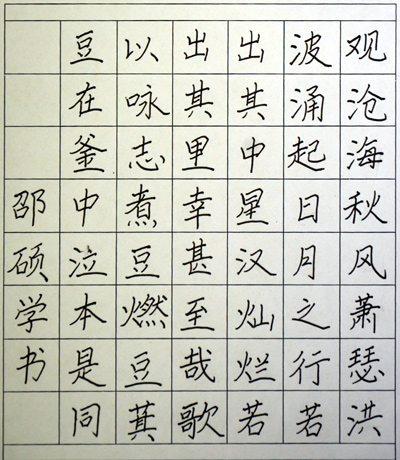 观沧海秋风萧瑟洪
波涌起日月之行若
出其中星汉灿烂若
出其里幸甚至哉歌
以咏志煮豆燃豆萁
豆在釜中泣本是同
邵硕学书